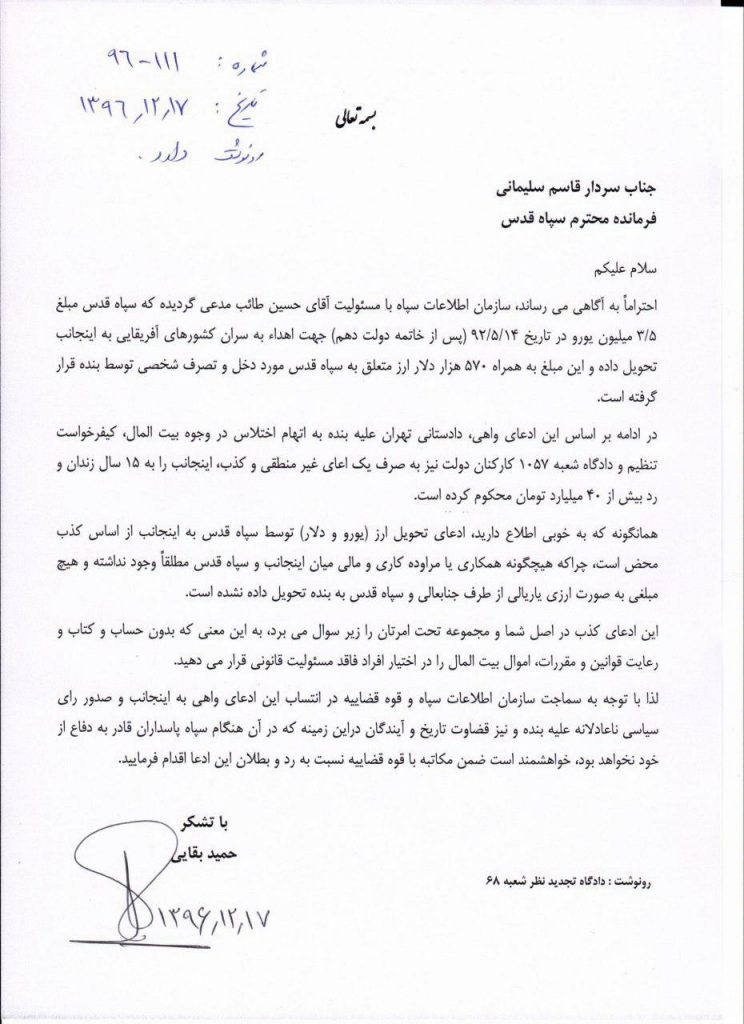 شماره : ۱۱۱-۹۶
تاریخ : ۱۳۹۶,۱۲,۱۷
رونوشت دارد.
بسمه تعالی
جناب سردار قاسم سلیمانی
فرمانده محترم سپاه قدس
سلام علیکم
احتراماً به آگاهی می رساند، سازمان اطلاعات سپاه با مسئولیت آقای حسین طائب مدعی گردیده که سپاه قدس مبلغ
۳/۵ میلیون یورو در تاریخ ۹۲/۵/۱۴ (پس از خاتمه دولت دهم) جهت اهداء به سران کشورهای آفریقایی به اینجانب
تحویل داده و این مبلغ به همراه ۵۷۰ هزار دلار ارز متعلق به سپاه قدس مورد دخل و تصرف شخصی توسط بنده قرار
گرفته است.
در ادامه بر اساس این ادعای واهی، دادستانی تهران علیه بنده به اتهام اختلاس در وجوه بیت المال، کیفرخواست
تنظیم و دادگاه شعبه ۱۰۵۷ کارکنان دولت نیز به صرف یک اعای غیر منطقی و کذب، اینجانب را به ۱۵ سال زندان و
رد بیش از ۴۰ میلیارد تومان محکوم کرده است.
همانگونه که به خوبی اطلاع دارید، ادعای تحویل ارز (یورو و دلار) توسط سپاه قدس به اینجانب از اساس کذب
محض است، چراکه هیچگونه همکاری یا مراوده کاری و مالی میان اینجانب و سپاه قدس مطلقاً وجود نداشته و هیچ
مبلغی به صورت ارزی یاریالی از طرف جنابعالی و سپاه قدس به بنده تحویل داده نشده است.
این ادعای کذب در اصل شما و مجموعه تحت امرتان را زیر سوال می برد، به این معنی که بدون حساب و کتاب و
رعایت قوانین و مقررات، اموال بیت المال را در اختیار افراد فاقد مسئولیت قانونی قرار می دهید.
لذا با توجه به سماجت سازمان اطلاعات سپاه و قوه قضاییه در انتساب این ادعای واهی به اینجانب و صدور رای
سیاسی ناعادلانه علیه بنده و نیز قضاوت تاریخ و آیندگان دراین زمینه که در آن هنگام سپاه پاسداران قادر به دفاع از
خود نخواهد بود، خواهشمند است ضمن مکاتبه با قوه قضاییه نسبت به رد و بطلان این ادعا اقدام فرمایید.
با تشکر
حمید بقایی
۱۳۹۶,۱۲,۱۷
رونوشت : دادگاه تجدید نظر شعبه ۶۸